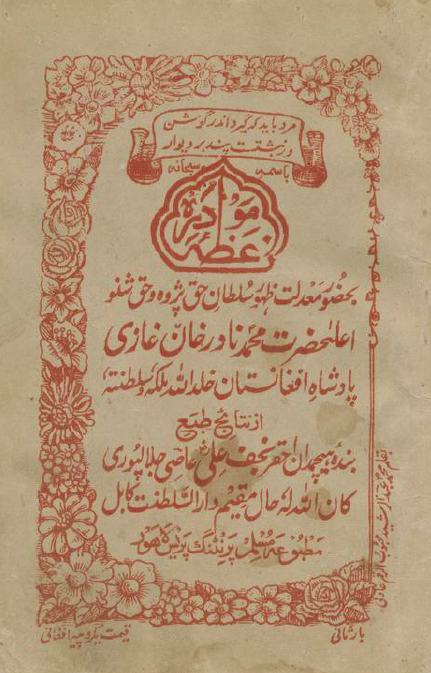 مرد باید که گیرد اندر گوش
ور نبشت است پند بر دیوار
باسمه سبحانه
موعظه نادره
بحضور معدلت ظهور سلطان حق پژوه و حق شنو
اعلیحضرت محمد نادر خان غازی
پادشاه افغانستان خلد الله ملکه و سلطنته
از نتائج طبع
بنده هیچمدان احقر نجف علی عاصی جلالپوری
کان الله له حال مقیم دار السلطنت کابل
مطبوعه مسلم پرنٹنگ پریس لاهور
بار ثانی
قیمت یکروپیه افغانی